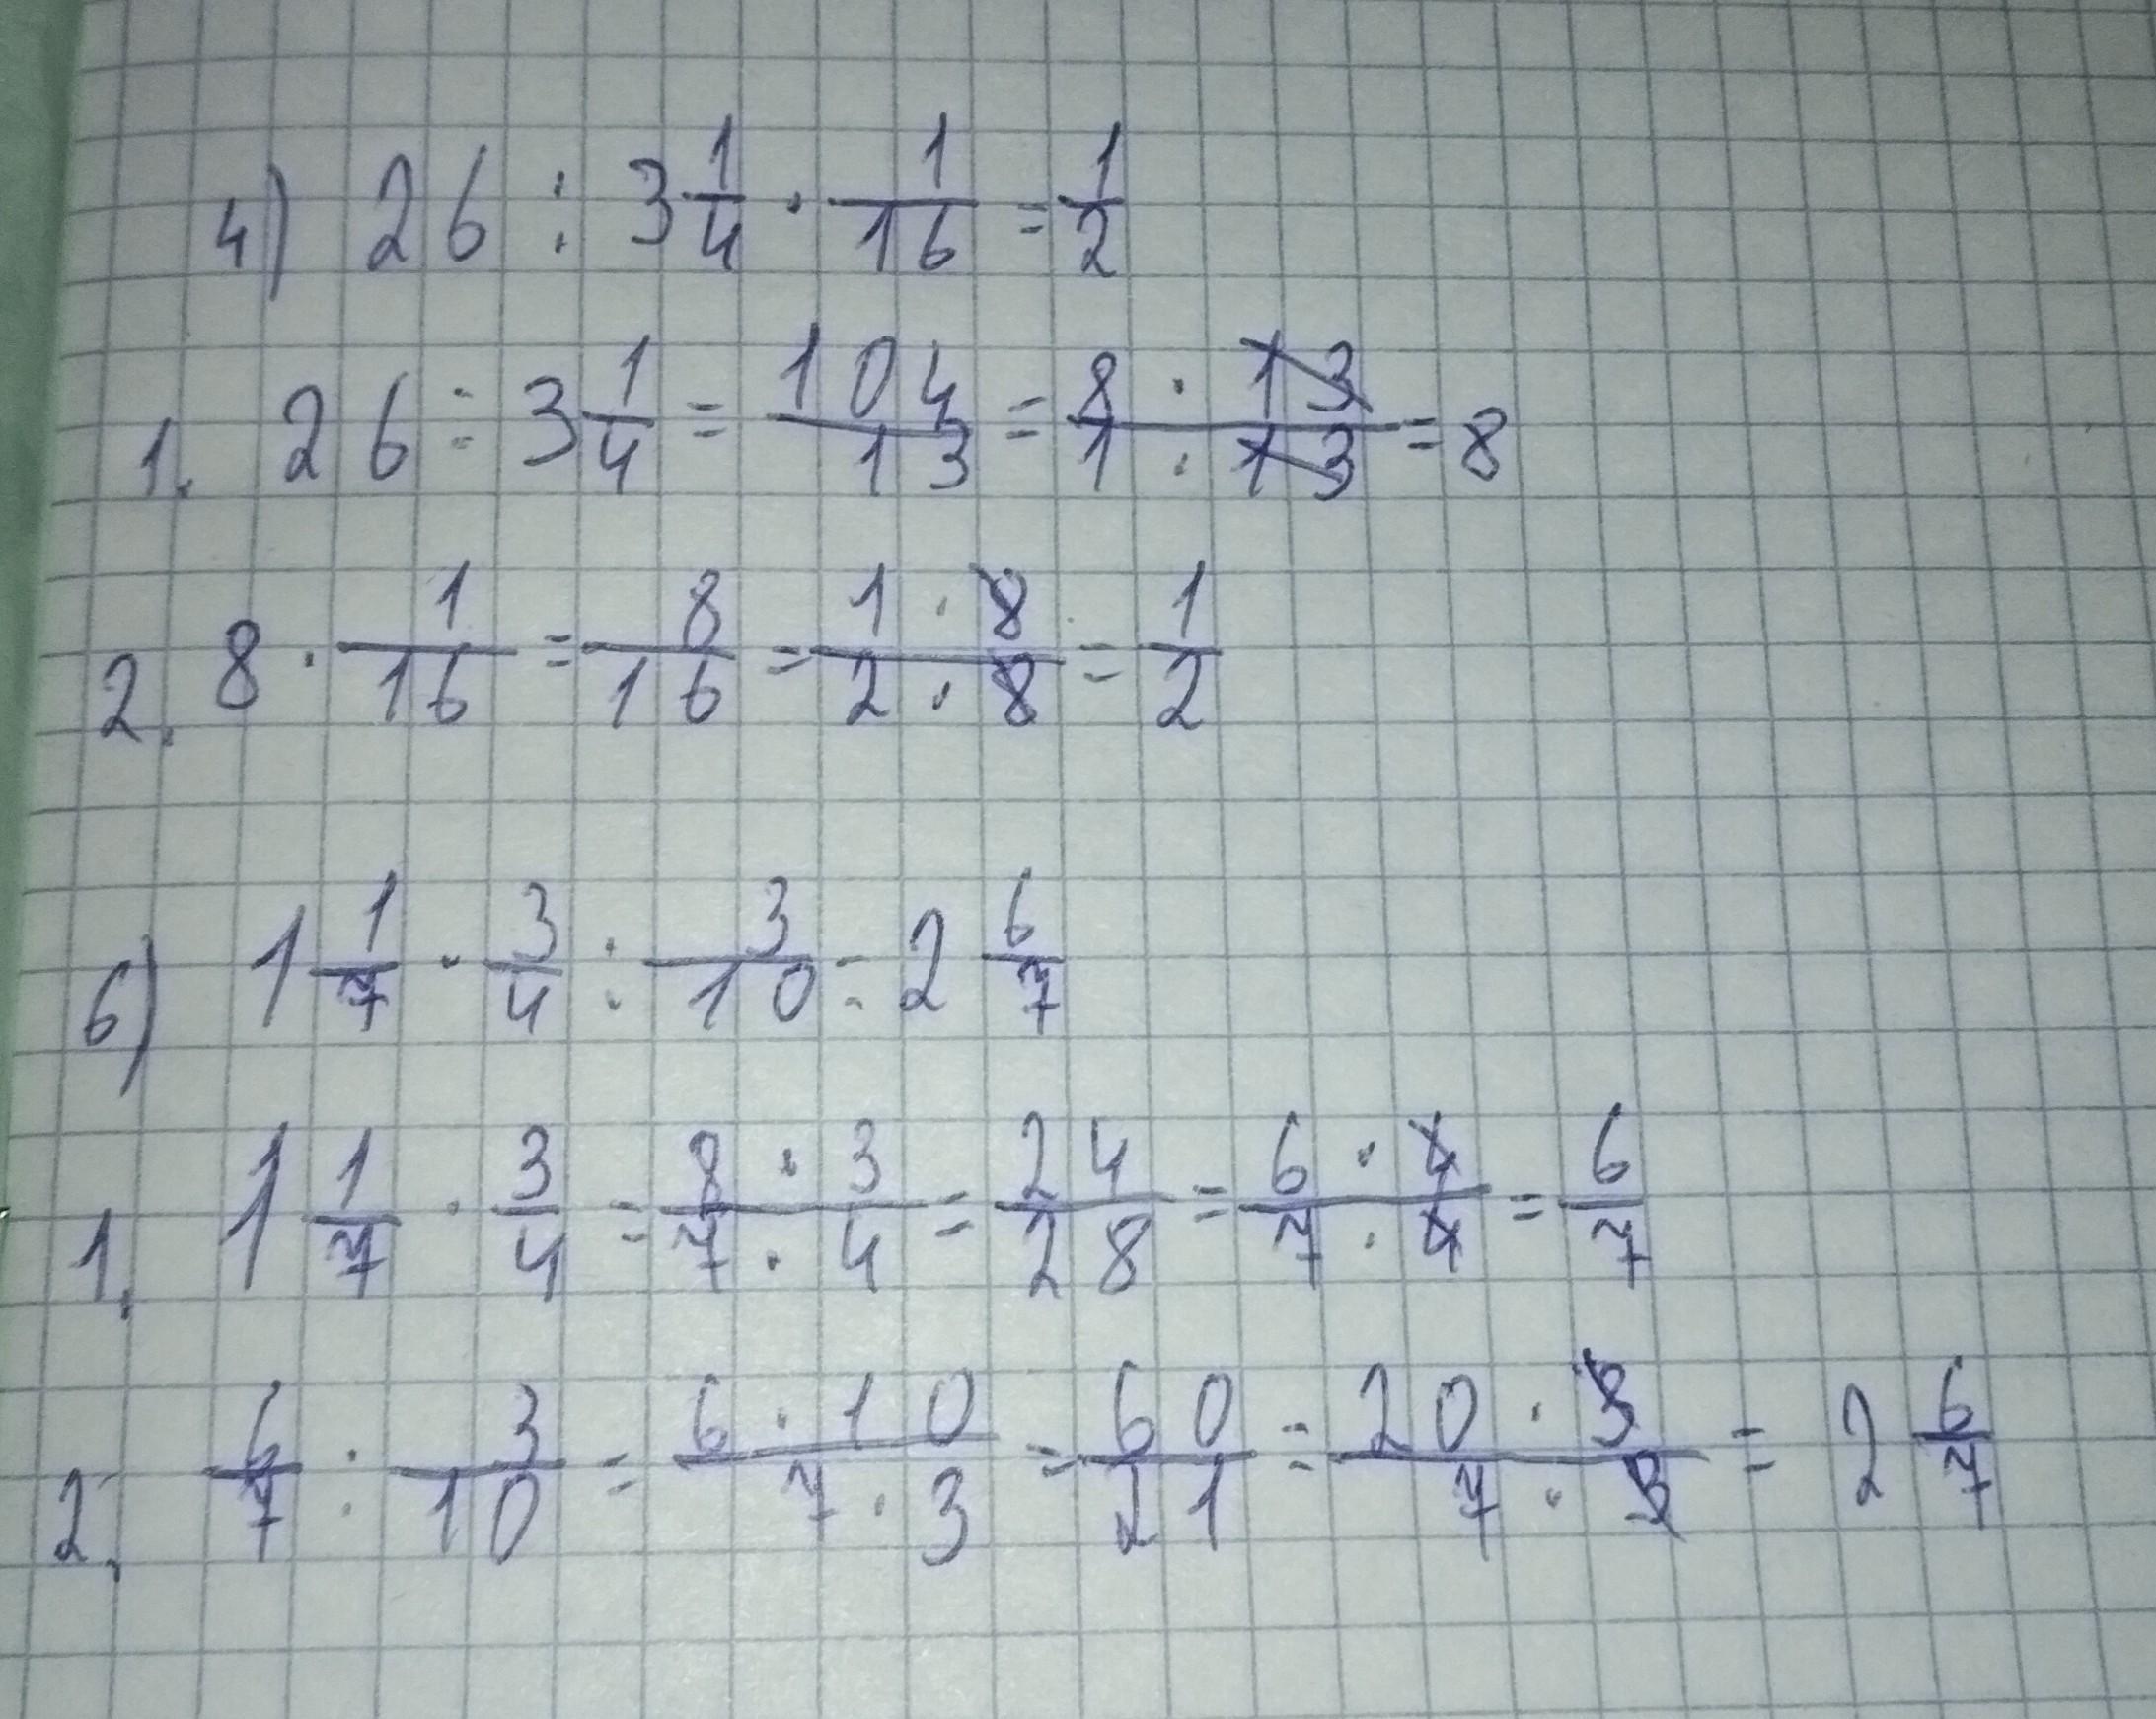 4) 26 : 3 1/4 · 1/16 = 1/2
1. 26 : 3 1/4 = 104/13 = 8 · 13/1 · 13 = 8
2. 8 · 1/16 = 8/16 = 1 · 8/2 · 8 = 1/2
6) 1 1/7 · 3/4 : 3/10 = 2 6/7
1. 1 1/7 · 3/4 = 8 · 3/7 · 4 = 24/28 = 6 · 4/7 · 4 = 6/7
2. 6/7 : 3/10 = 6 · 10/7 · 3 = 60/21 = 20 · 3/7 · 3 = 2 6/7